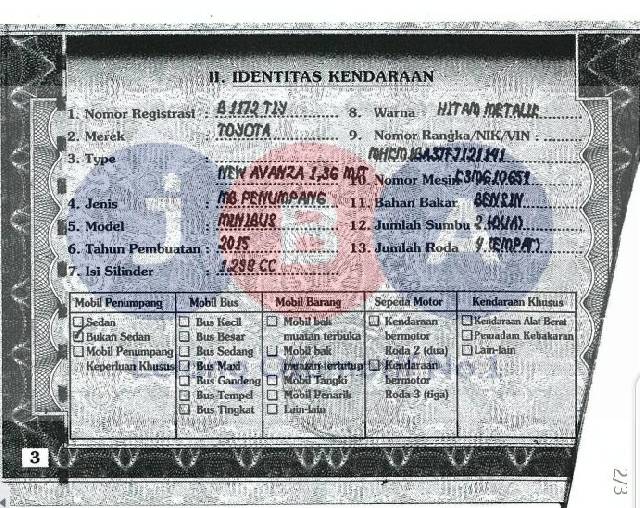 II. IDENTITAS KENDARAAN
1. Nomor Registrasi : B 1172 TIY
2. Merek : TOYOTA
3. Type : NEW AVANZA 1,3G M/T
4. Jenis : MB PENUMPANG
5. Model : MINIBUS
6. Tahun Pembuatan : 2015
7. Isi Silinder : 1.298 CC
8. Warna : HITAM METALIK
9. Nomor Rangka/NIK/VIN :
10. Nomor Mesin
11. Bahan Bakar BENSIN
12. Jumlah Sumbu 2 (DUA)
13. Jumlah Roda 4 (EMPAT)
Mobil Penumpang
Sedan
Bukan Sedan
Mobil Penumpang
Keperluan Khusus
Mobil Bus
Bus Kecil
Bus Besar
Bus Sedang
Bus Maxi
Bus Gandeng
Bus Tempel
Bus Tingkat
Mobil Barang
Mobil bak
muatan terbuka
Mobil bak
muatan tertutup
Mobil Tangki
Mobil Penarik
Lain-lain
Sepeda Motor
Kendaraan
bermotor
Roda 2 (dua)
Kendaraan
bermotor
Roda 3 (tiga)
Kendaraan Khusus
Kendaraan Alat Berat
Pemadam Kebakaran
Lain-lain
3
2/3
iBA